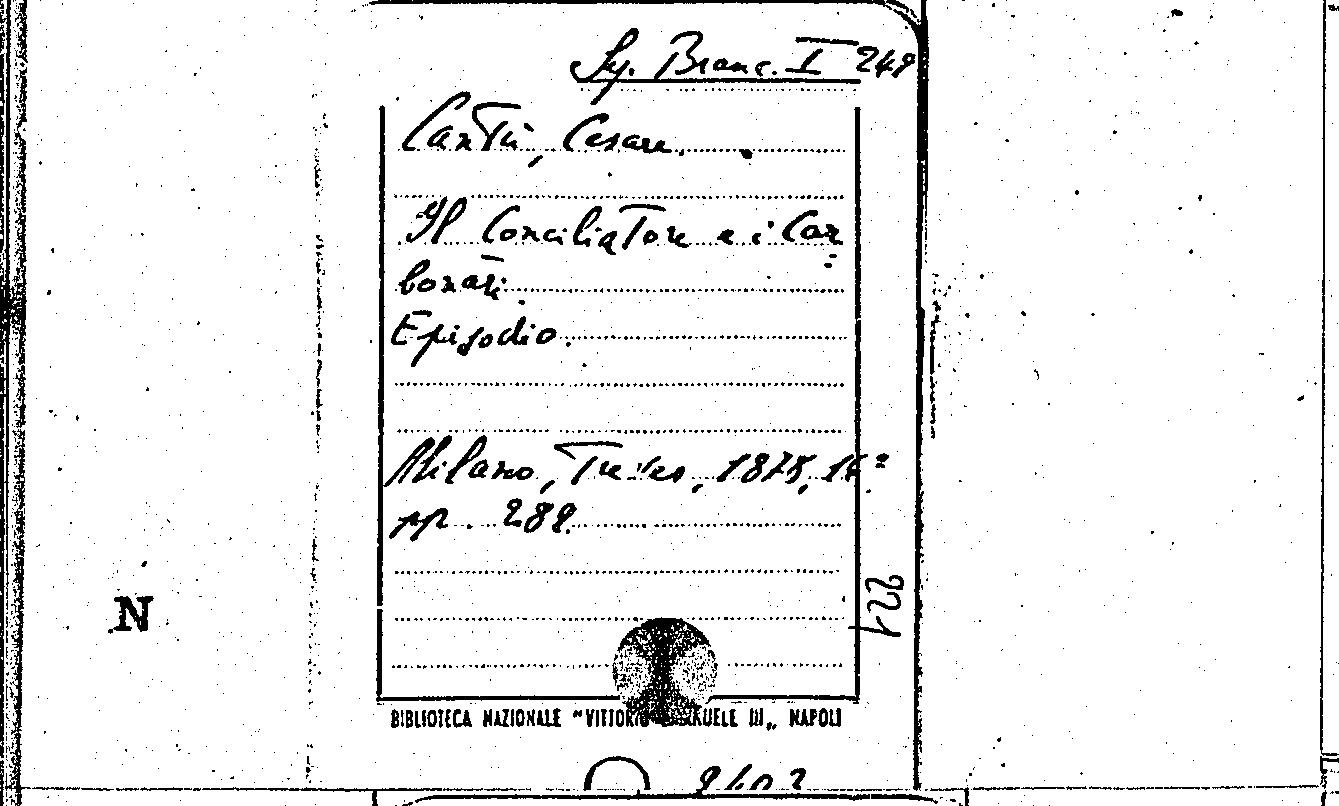 Sy. Branc. I 249
Cantù, Cesare.
Il Conciliatore e i Car=
bonari.
Episodio.
Milano, Treves, 1878, 16°
pp. 288.
221
N
BIBLIOTECA NAZIONALE "VITTORIO EMANUELE III„ NAPOLI